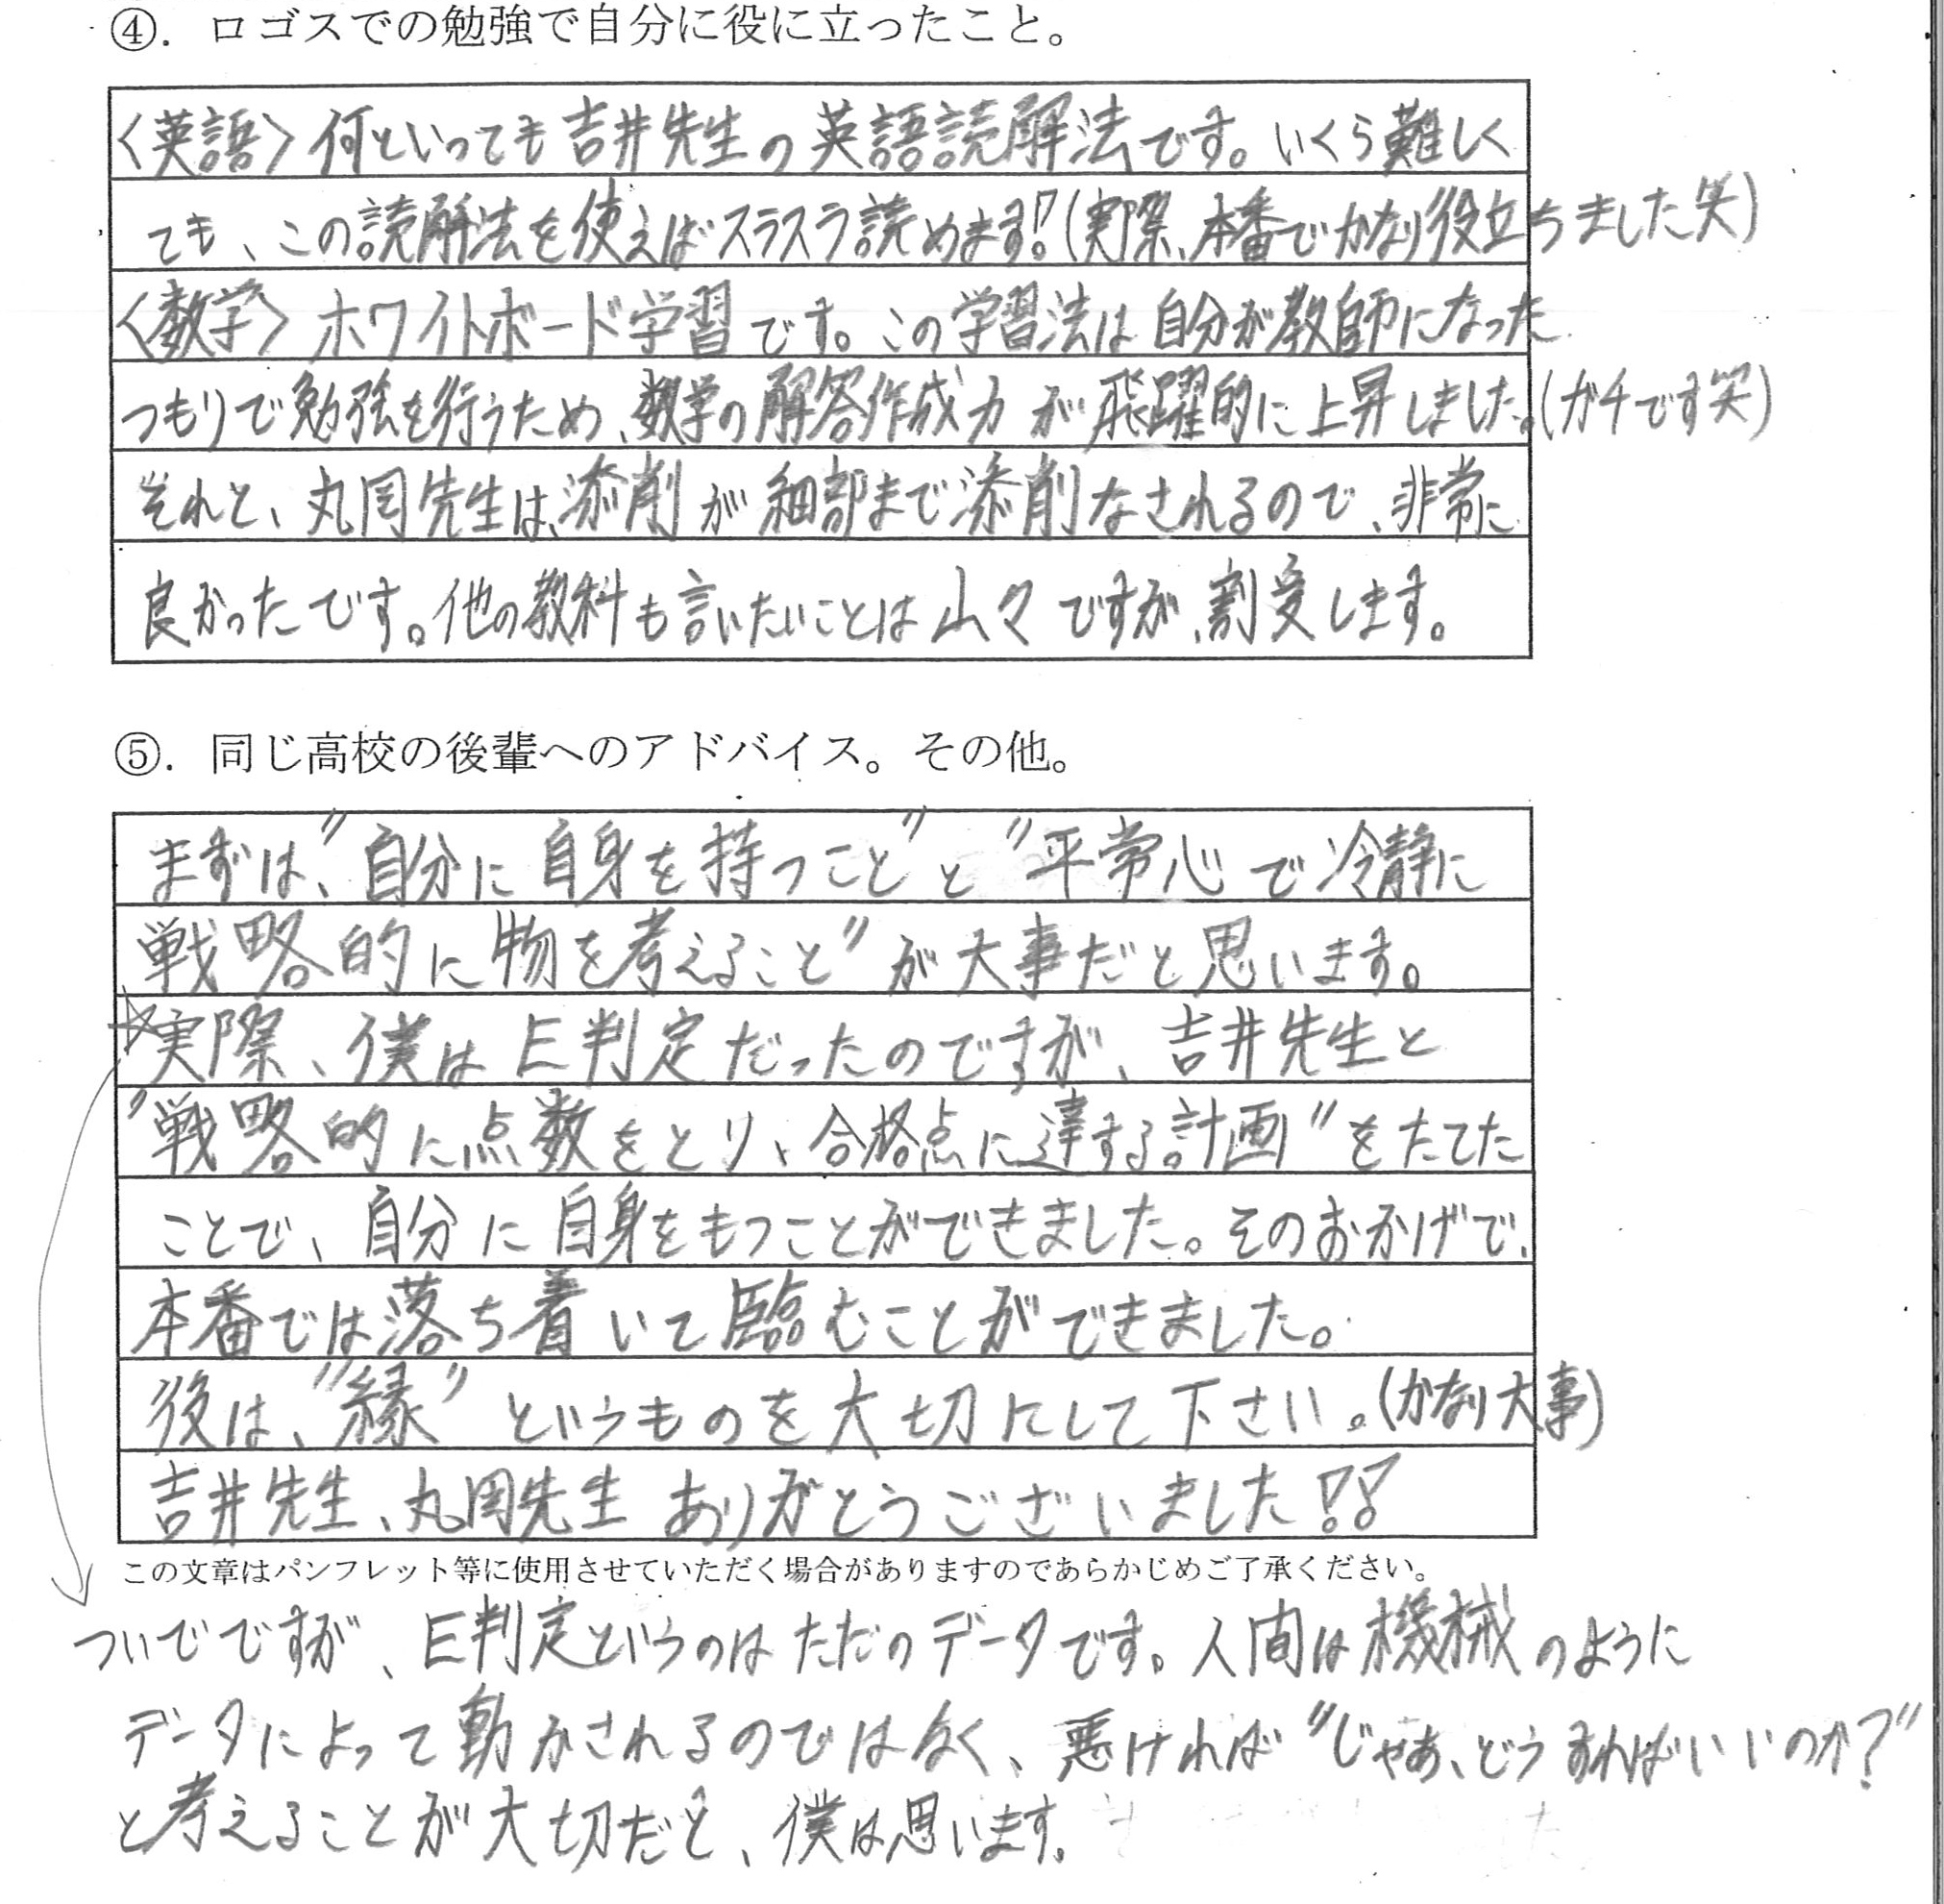 ④. ロゴスでの勉強で自分に役に立ったこと。
〈英語〉何といっても吉井先生の英語読解法です。いくら難しく
ても、この読解法を使えばスラスラ読めます!(実際、本番でかなり役立ちました笑)
〈数学〉ホワイトボード学習です。この学習法は自分が教師になった
つもりで勉強を行うため、数学の解答作成力が飛躍的に上昇しました。(ガチです笑)
それと、丸岡先生は、添削が細部まで添削なされるので、非常に
良かったです。他の教科も言いたいことは山々ですが、割愛します。
⑤. 同じ高校の後輩へのアドバイス。その他。
まずは、"自分に自身を持つこと"と"平常心で冷静に
戦略的に物を考えること"が大事だと思います。
☆実際、僕はE判定だったのですが、吉井先生と
"戦略的に点数をとり、合格点に達する計画"をたてた
ことで、自分に自身をもつことができました。そのおかげで、
本番では落ち着いて臨むことができました。
後は、"縁"というものを大切にして下さい。(かなり大事)
吉井先生、丸岡先生 ありがとうございました!!
この文章はパンフレット等に使用させていただく場合がありますのであらかじめご了承ください。
ついでですが、E判定というのはただのデータです。人間は機械のように
データによって動かされるのではなく、悪ければ"じゃあ、どうすればいいのか?"
と考えることが大切だと、僕は思います。